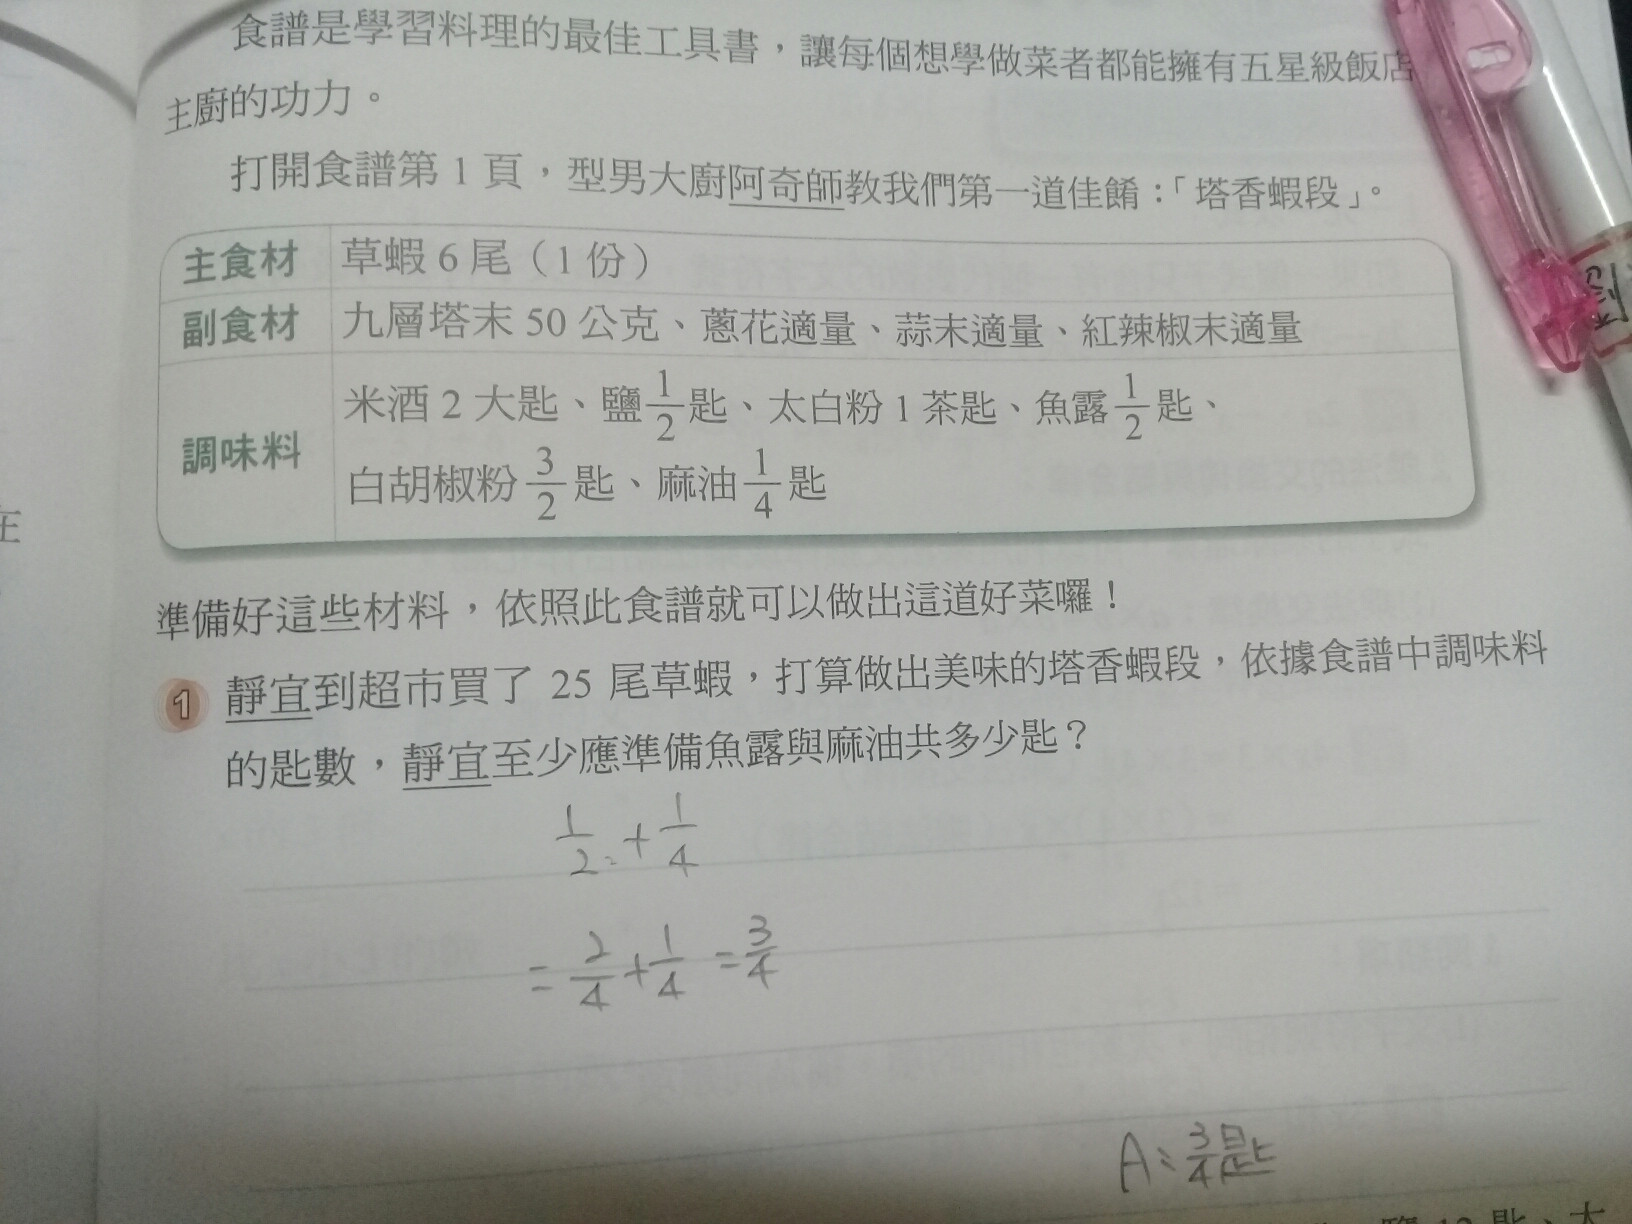 食譜是學習料理的最佳工具書，讓每個想學做菜者都能擁有五星級飯店
主廚的功力。
打開食譜第1頁，型男大廚阿奇師教我們第一道佳餚：「塔香蝦段」。
主食材 草蝦6尾（1份）
副食材 九層塔末50公克、蔥花適量、蒜末適量、紅辣椒末適量
調味料 米酒2大匙、鹽1/2匙、太白粉1茶匙、魚露1/2匙、
白胡椒粉3/2匙、麻油1/4匙
在
準備好這些材料，依照此食譜就可以做出這道好菜囉！
1 靜宜到超市買了25尾草蝦，打算做出美味的塔香蝦段，依據食譜中調味料
的匙數，靜宜至少應準備魚露與麻油共多少匙？
1/2+1/4
=2/4+1/4=3/4
A:3/4匙